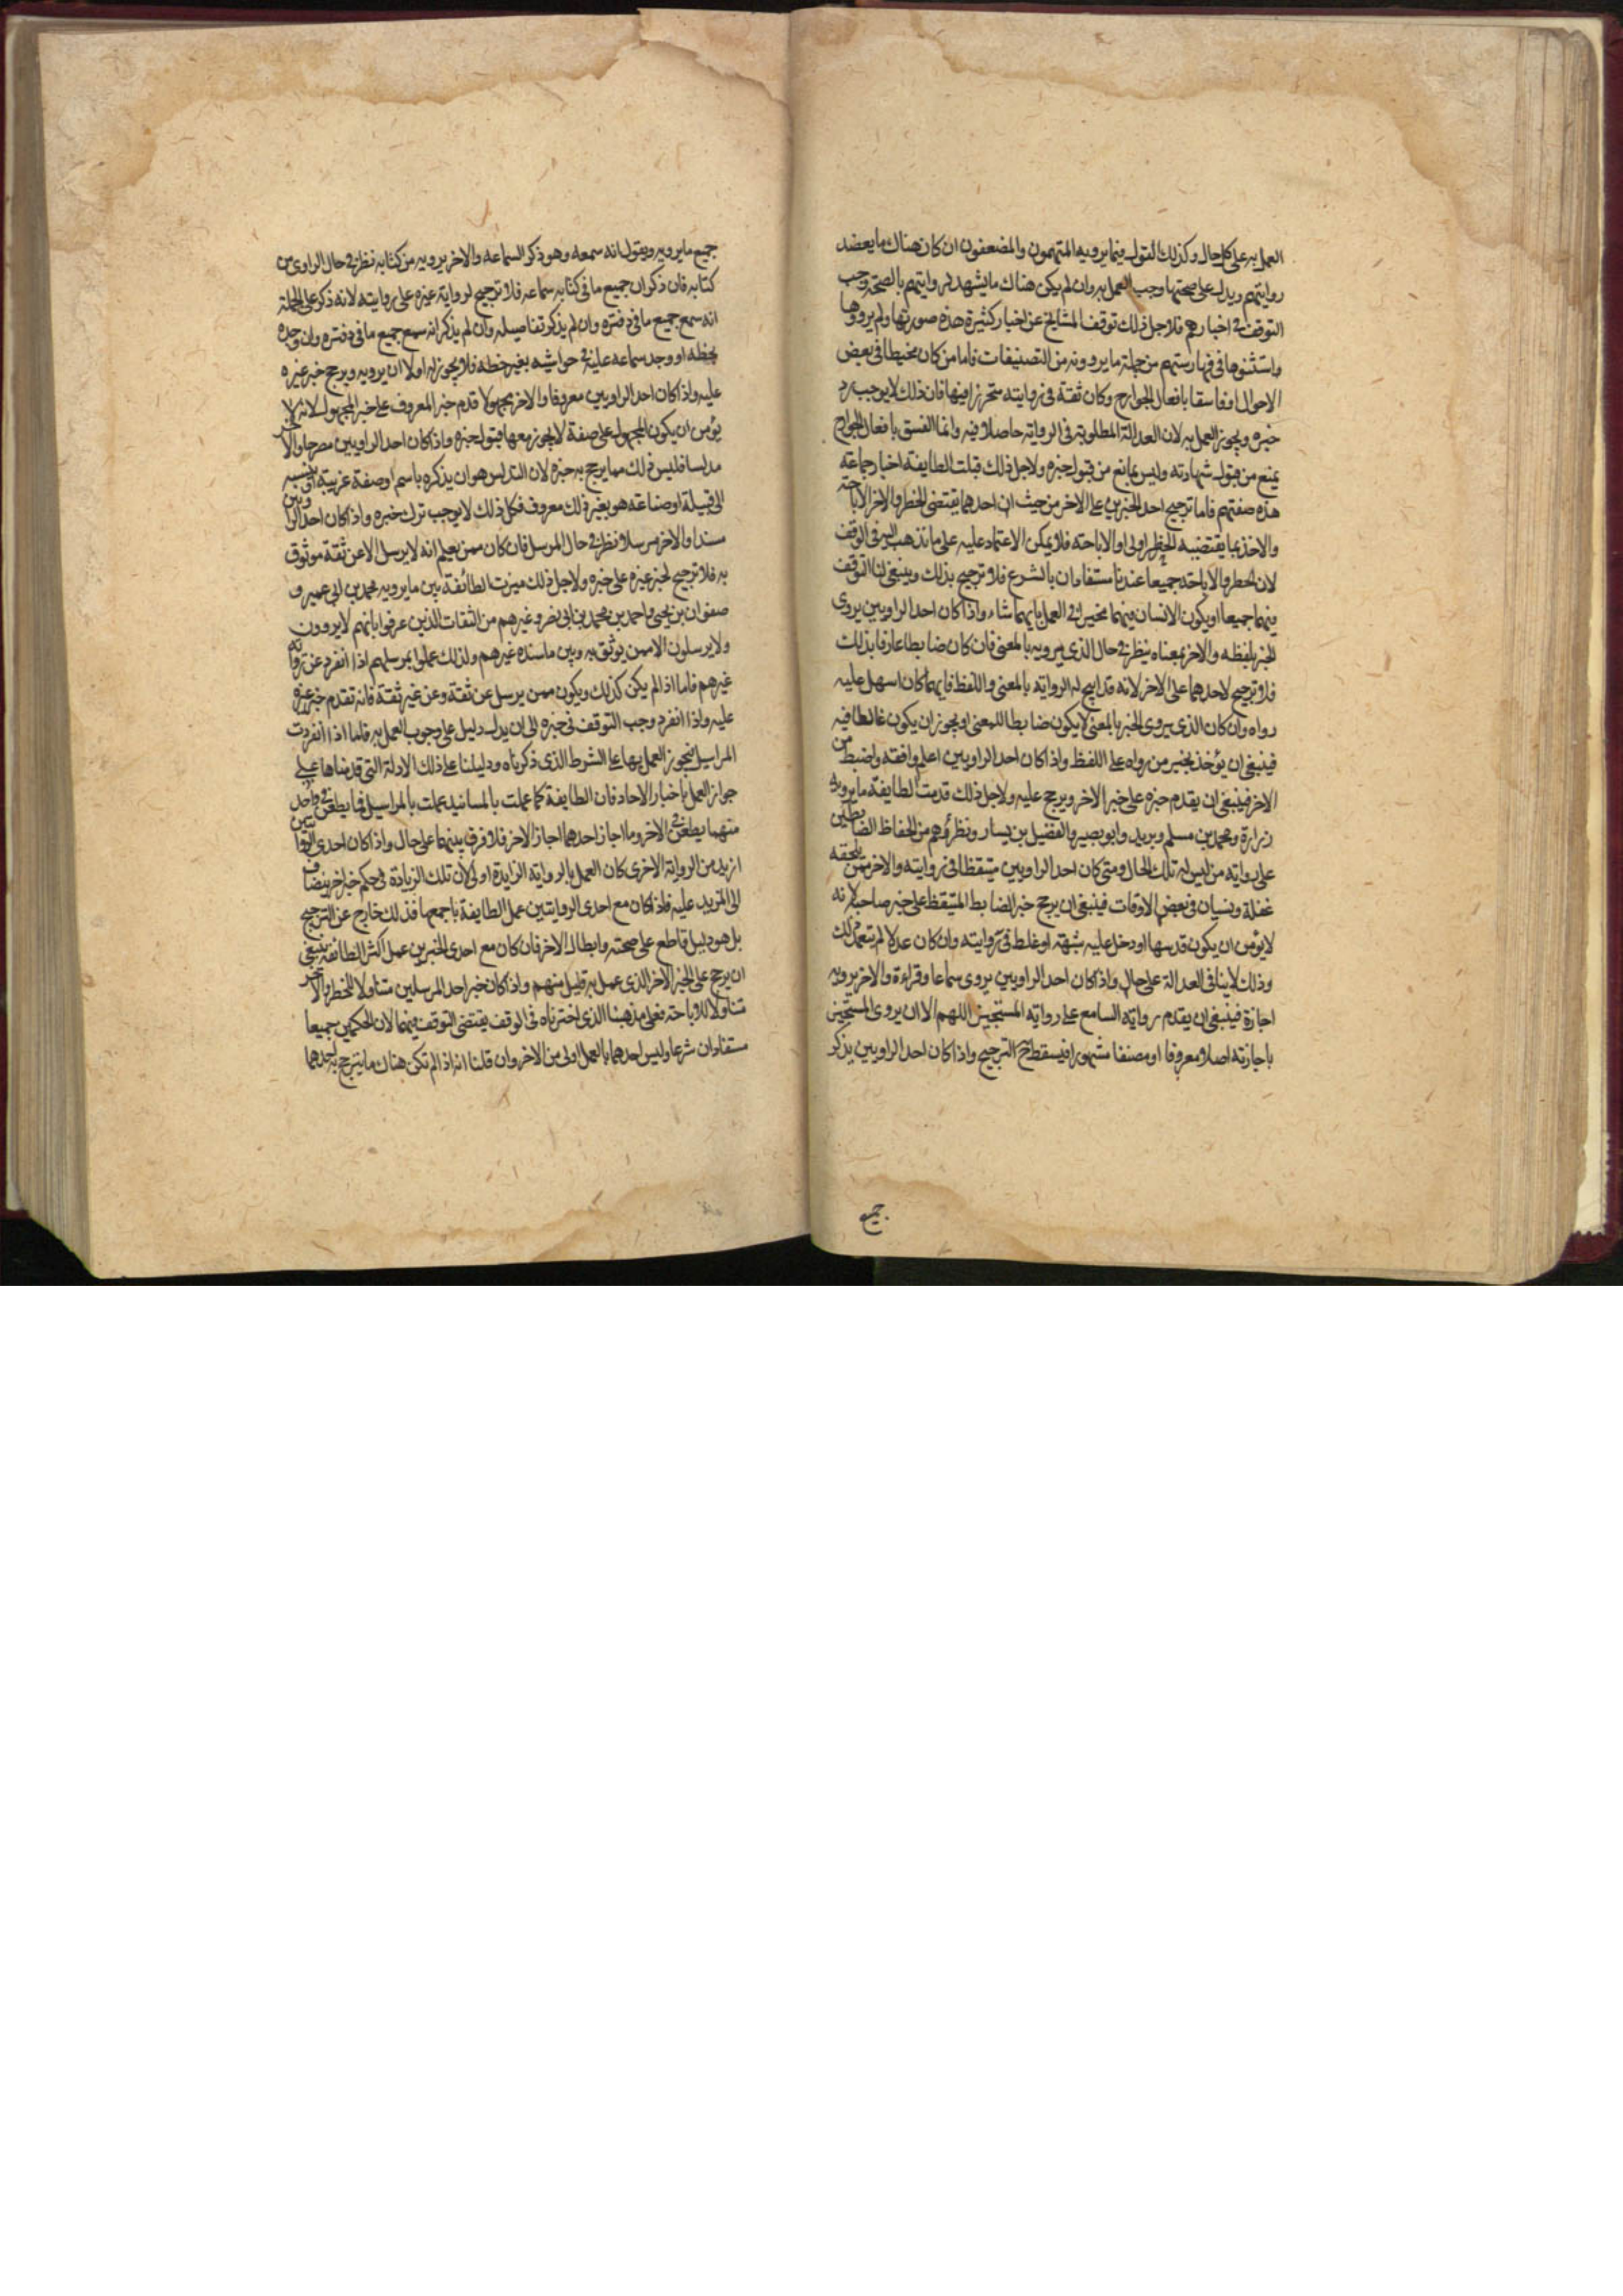 العمل به على كل حال وكذلك القول فيما يرويه المتهمون والمضعفون ان كان هناك ما يعضد
روايتهم ويدل على صحتها وجب العمل به وان لم يكن هناك ما يشهد لروايتهم بالصحة وجب
التوقف في اخبارهم فلاجل ذلك توقف المشايخ عن اخبار كثيرة هذه صورتها ولم يرووها
واستثنوها في فهارستهم من جملة ما يروونه من التصنيفات فاما من كان مخطيا في بعض
الاحوال او فاسقا بافعال الجوارح وكان ثقة في روايته متحرزا فيها فان ذلك لا يوجب رد
خبره ويجوز العمل به لان العدالة المطلوبة في الرواية حاصلا فيه وانما الفسق بافعال الجوارح
يمنع من قبول شهادته وليس بمانع من قبول خبره ولاجل ذلك قبلت الطايفة اخبار جماعة
هذه صفتهم فاما ترجيح احد الخبرين على الاخر من حيث ان احدهما يقتضى الحظر والاخر الاباحة
والاخذ بما يقتضيه الحظر اولى او الاباحة فلا يمكن الاعتماد عليه على ما نذهب اليه في الوقف
لان الحظر والاباحة جميعا عندنا مستفادان بالشرع فلا ترجيح بذلك وينبغي لنا التوقف
فيهما جميعا او يكون الانسان فيهما مخيرا في العمل بايهما شاء واذا كان احد الراويين يروى
الخبر بلفظه والاخر بمعناه ينظر في حال الذي يرويه بالمعنى فان كان ضابطا عارفا بذلك
فلا ترجيح لاحدهما على الاخر لانه قد ابيح له الرواية بالمعنى واللفظ فايهما كان اسهل عليه
رواه وان كان الذي يروى الخبر بالمعنى لا يكون ضابطا للمعنى او يجوز ان يكون غالطا فيه
فينبغي ان يؤخذ بخبر من رواه على اللفظ واذا كان احد الراويين اعلم وافقه واضبط من
الاخر فينبغي ان يقدم خبره على خبر الاخر ويرجح عليه ولاجل ذلك قدمت الطايفة ما يرويه
زرارة ومحمد بن مسلم وبريد وابو بصير والفضيل بن يسار ونظرائهم من الحفاظ الضابطين
على رواية من ليس له تلك الحال ومتى كان احد الراويين متيقظا في روايته والاخر ممن يلحقه
غفلة ونسيان في بعض الاوقات فينبغي ان يرجح خبر الضابط المتيقظ على خبر صاحبه لانه
لا يؤمن ان يكون قد سها او دخل عليه شبهة او غلط في روايته وان كان عدلا لم يتعمد ذلك
وذلك لا ينافي العدالة على حال واذا كان احد الراويين يروى سماعا وقراءة والاخر يرويه
اجازة فينبغي ان يقدم رواية السامع على رواية المستجيز اللهم الا ان يروى المستجيز
باجازته اصلا معروفا او مصنفا مشهورا فيسقط ح الترجيح واذا كان احد الراويين يذكر
جميع
جميع ما يرويه ويقول انه سمعه وهو ذكر السماعه والاخر يرويه من كتابه نظر في حال الراوى من
كتابه فان ذكر ان جميع ما في كتابه سماعه فلا ترجيح لرواية غيره على روايته لانه ذكر على الجملة
انه سمع جميع ما في دفتره وان لم يذكر تفاصيله وان لم يذكر انه سمع جميع ما في دفتره وان وجده
بخطه او وجد سماعه عليه في حواشيه بغير خطه فلا يجوز له اولا ان يرويه ويرجح خبر غيره
عليه واذا كان احد الراويين معروفا والاخر مجهولا قدم خبر المعروف على خبر المجهول لانه لا
يؤمن ان يكون المجهول على صفة لا يجوز معها قبول خبره واذا كان احد الراويين مصرحا والاخر
مدلسا فليس ذلك مما يرجح به خبره لان التدليس هو ان يذكره باسم او صفة غريبة او ينسبه
الى قبيلة او صناعة هو بغير ذلك معروف فكل ذلك لا يوجب ترك خبره واذا كان احد الراويين
مسندا والاخر مرسلا نظر في حال المرسل فان كان ممن يعلم انه لا يرسل الا عن ثقة موثوق
به فلا ترجيح لخبر غيره على خبره ولاجل ذلك ميزت الطائفة بين ما يرويه محمد بن ابي عمير و
صفوان بن يحيى واحمد بن محمد بن ابي نصر وغيرهم من الثقات الذين عرفوا بانهم لا يروون
ولا يرسلون الا ممن يوثق به وبين ما اسنده غيرهم ولذلك عملوا بمرسلهم اذا انفرد عن رواية
غيرهم فاما اذا لم يكن كذلك ويكون ممن يرسل عن ثقة وعن غير ثقة فانه تقدم خبر غيره
عليه واذا انفرد وجب التوقف في خبره الى ان يدل دليل على وجوب العمل به فاما اذا انفردت
المراسيل فيجوز العمل بها على الشرط الذي ذكرناه ودليلنا على ذلك الادلة التي قدمناها على
جواز العمل باخبار الاحاد فان الطايفة كما عملت بالمسانيد عملت بالمراسيل فما يطعن في واحد
منهما يطعن في الاخر وما اجاز احدهما اجاز الاخر فلا فرق بينهما على حال واذا كان احدى الروايتين
ازيد من الرواية الاخرى كان العمل بالرواية الزايدة اولى لان تلك الزيادة في حكم خبر اخر ينضاف
الى المزيد عليه فاذا كان مع احدى الروايتين عمل الطايفة باجمعها فذلك خارج عن الترجيح
بل هو دليل قاطع على صحته وابطال الاخر فان كان مع احدى الخبرين عمل اكثر الطائفة ينبغي
ان يرجح على الخبر الاخر الذي عمل به قليل منهم واذا كان خبر احد المرسلين متناولا للحظر والاخر
متناولا للاباحة فعلى مذهبنا الذي اخترناه في الوقف يقتضى التوقف فيهما لان الحكمين جميعا
مستفادان شرعا وليس احدهما بالعمل اولى من الاخر وان قلنا انه اذا لم تكن هناك ما يترجح به احدهما